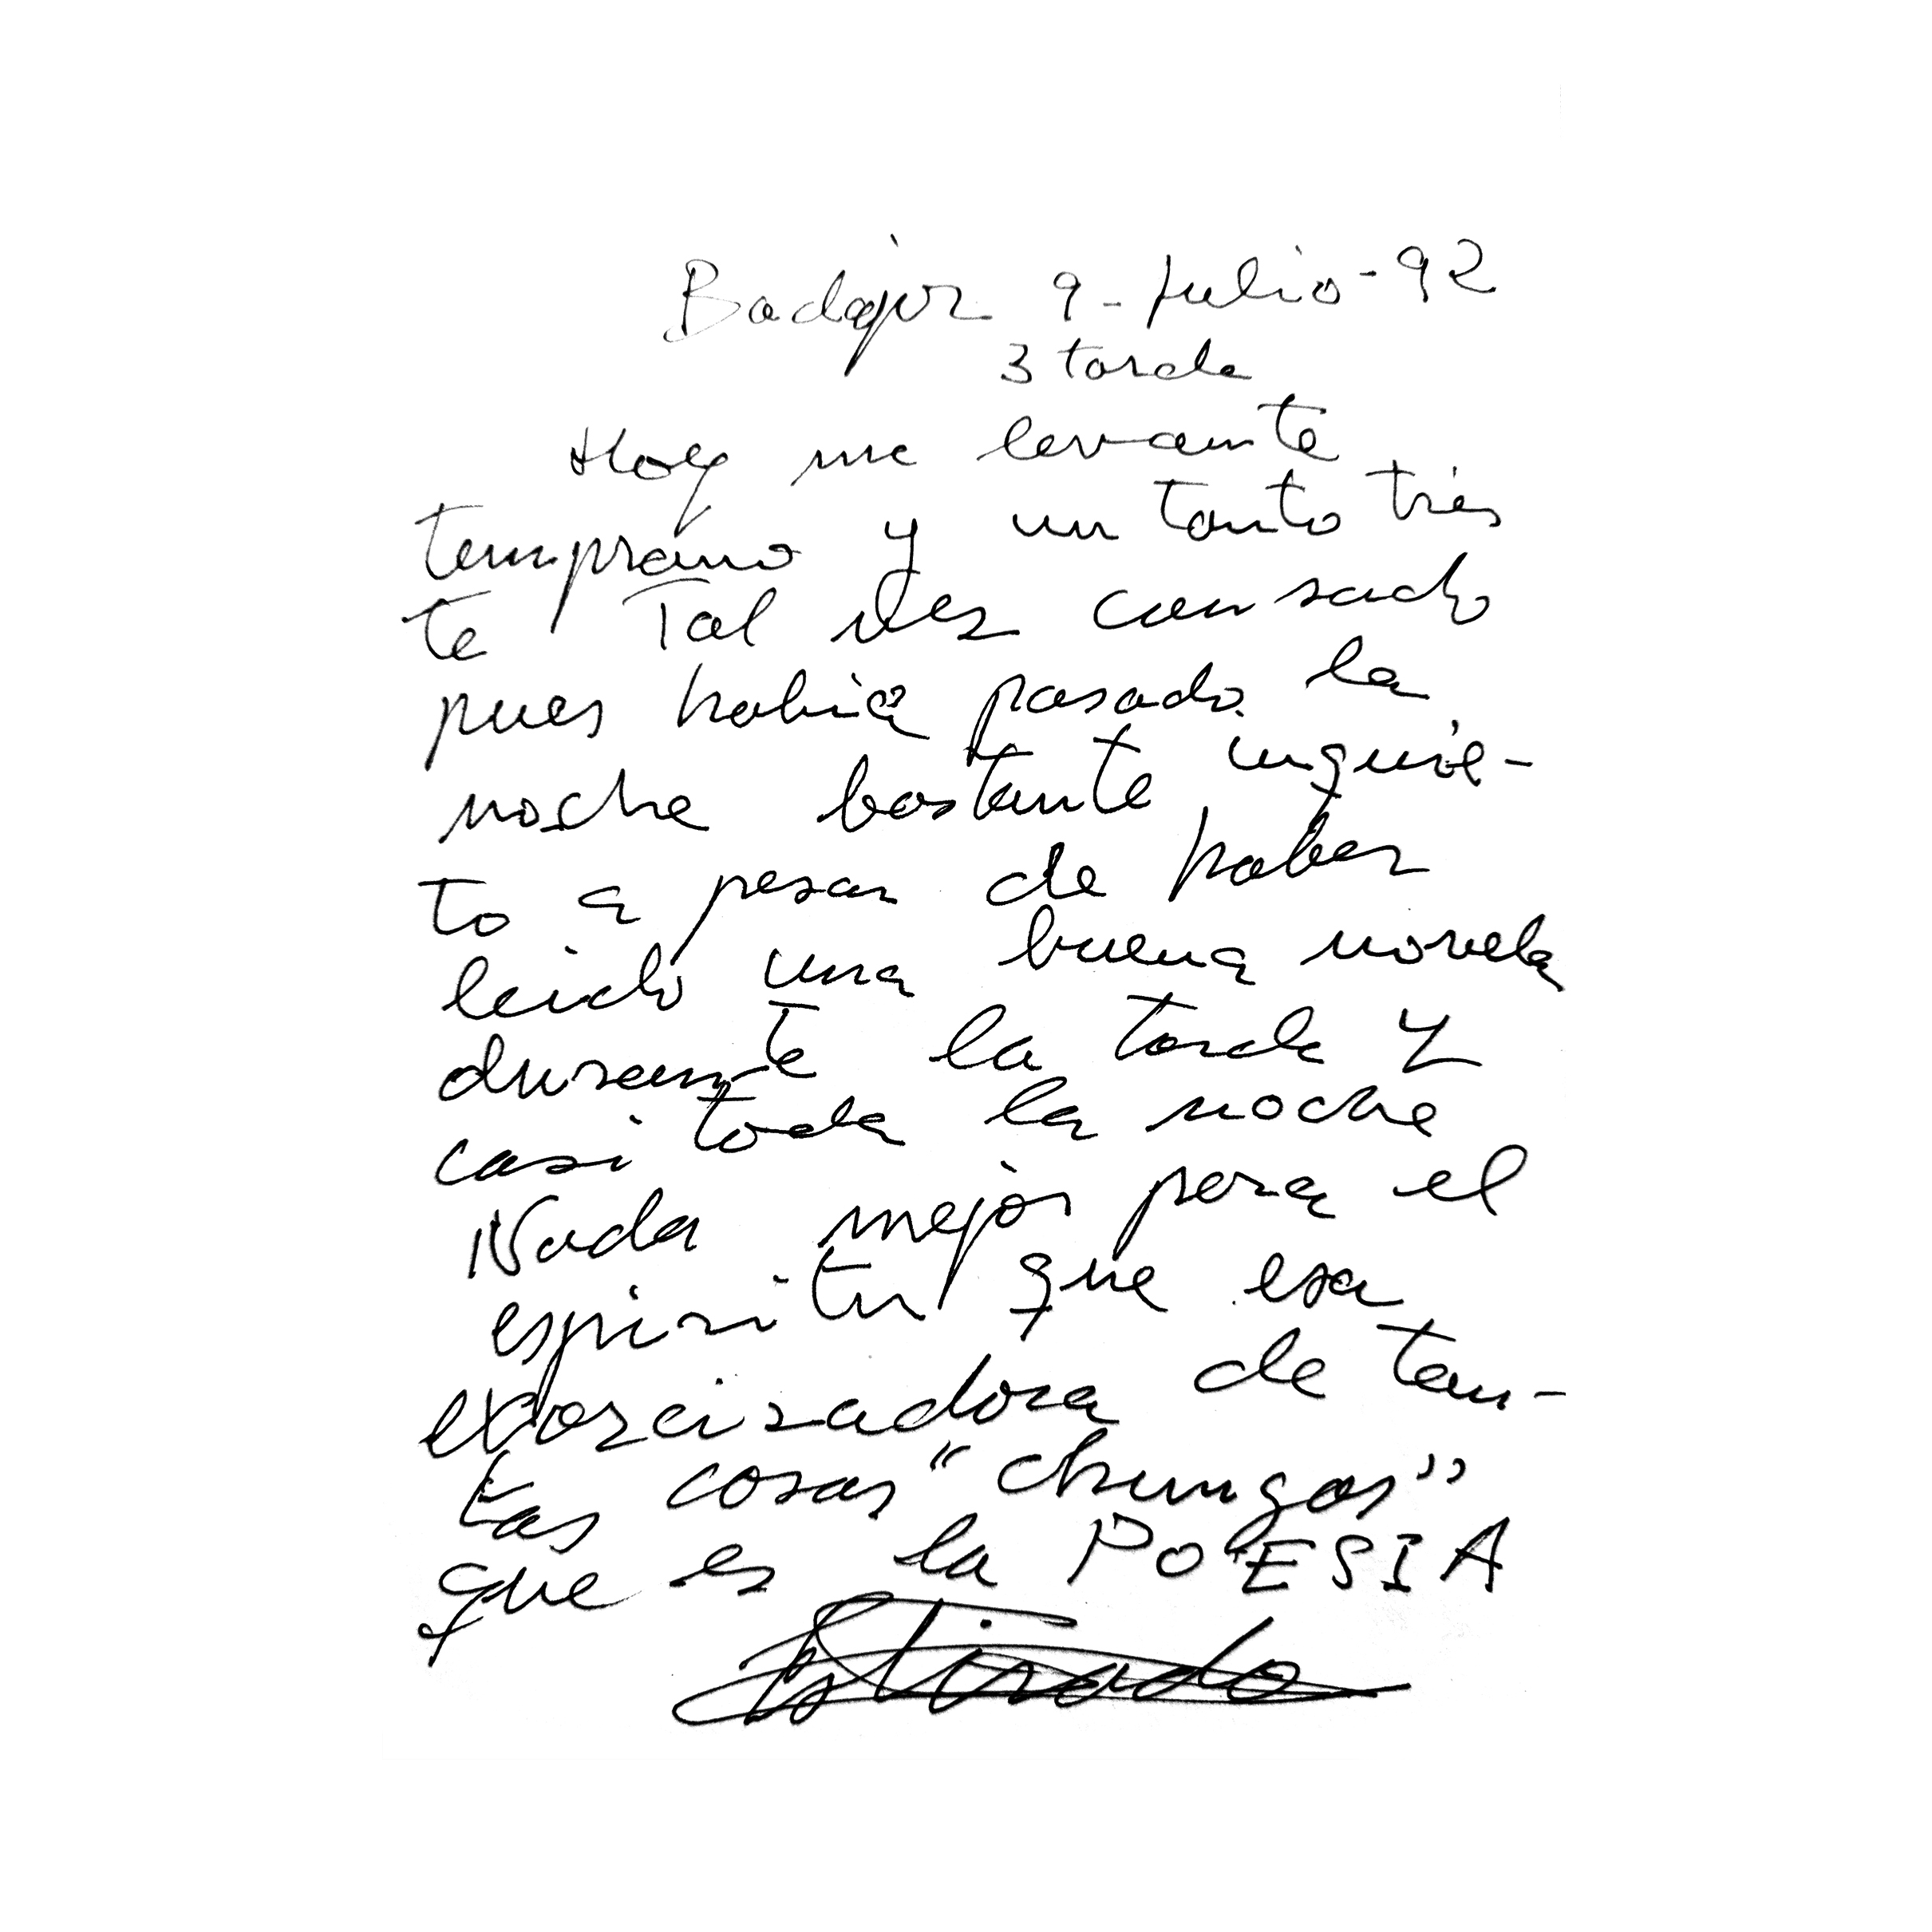 Badajoz 9-Julio-92
3 tarde
Hoy me levante
temprano y un tanto tris
te Tal vez cansado
pues había pasado la
noche bastante inquie-
to a pesar de haber
leido una buena novela
durante la tarde y
casi toda la noche
Nada mejor para el
espiritu que esa
exforcizadora de tan-
tas cosas "chungas"
que es la POESIA